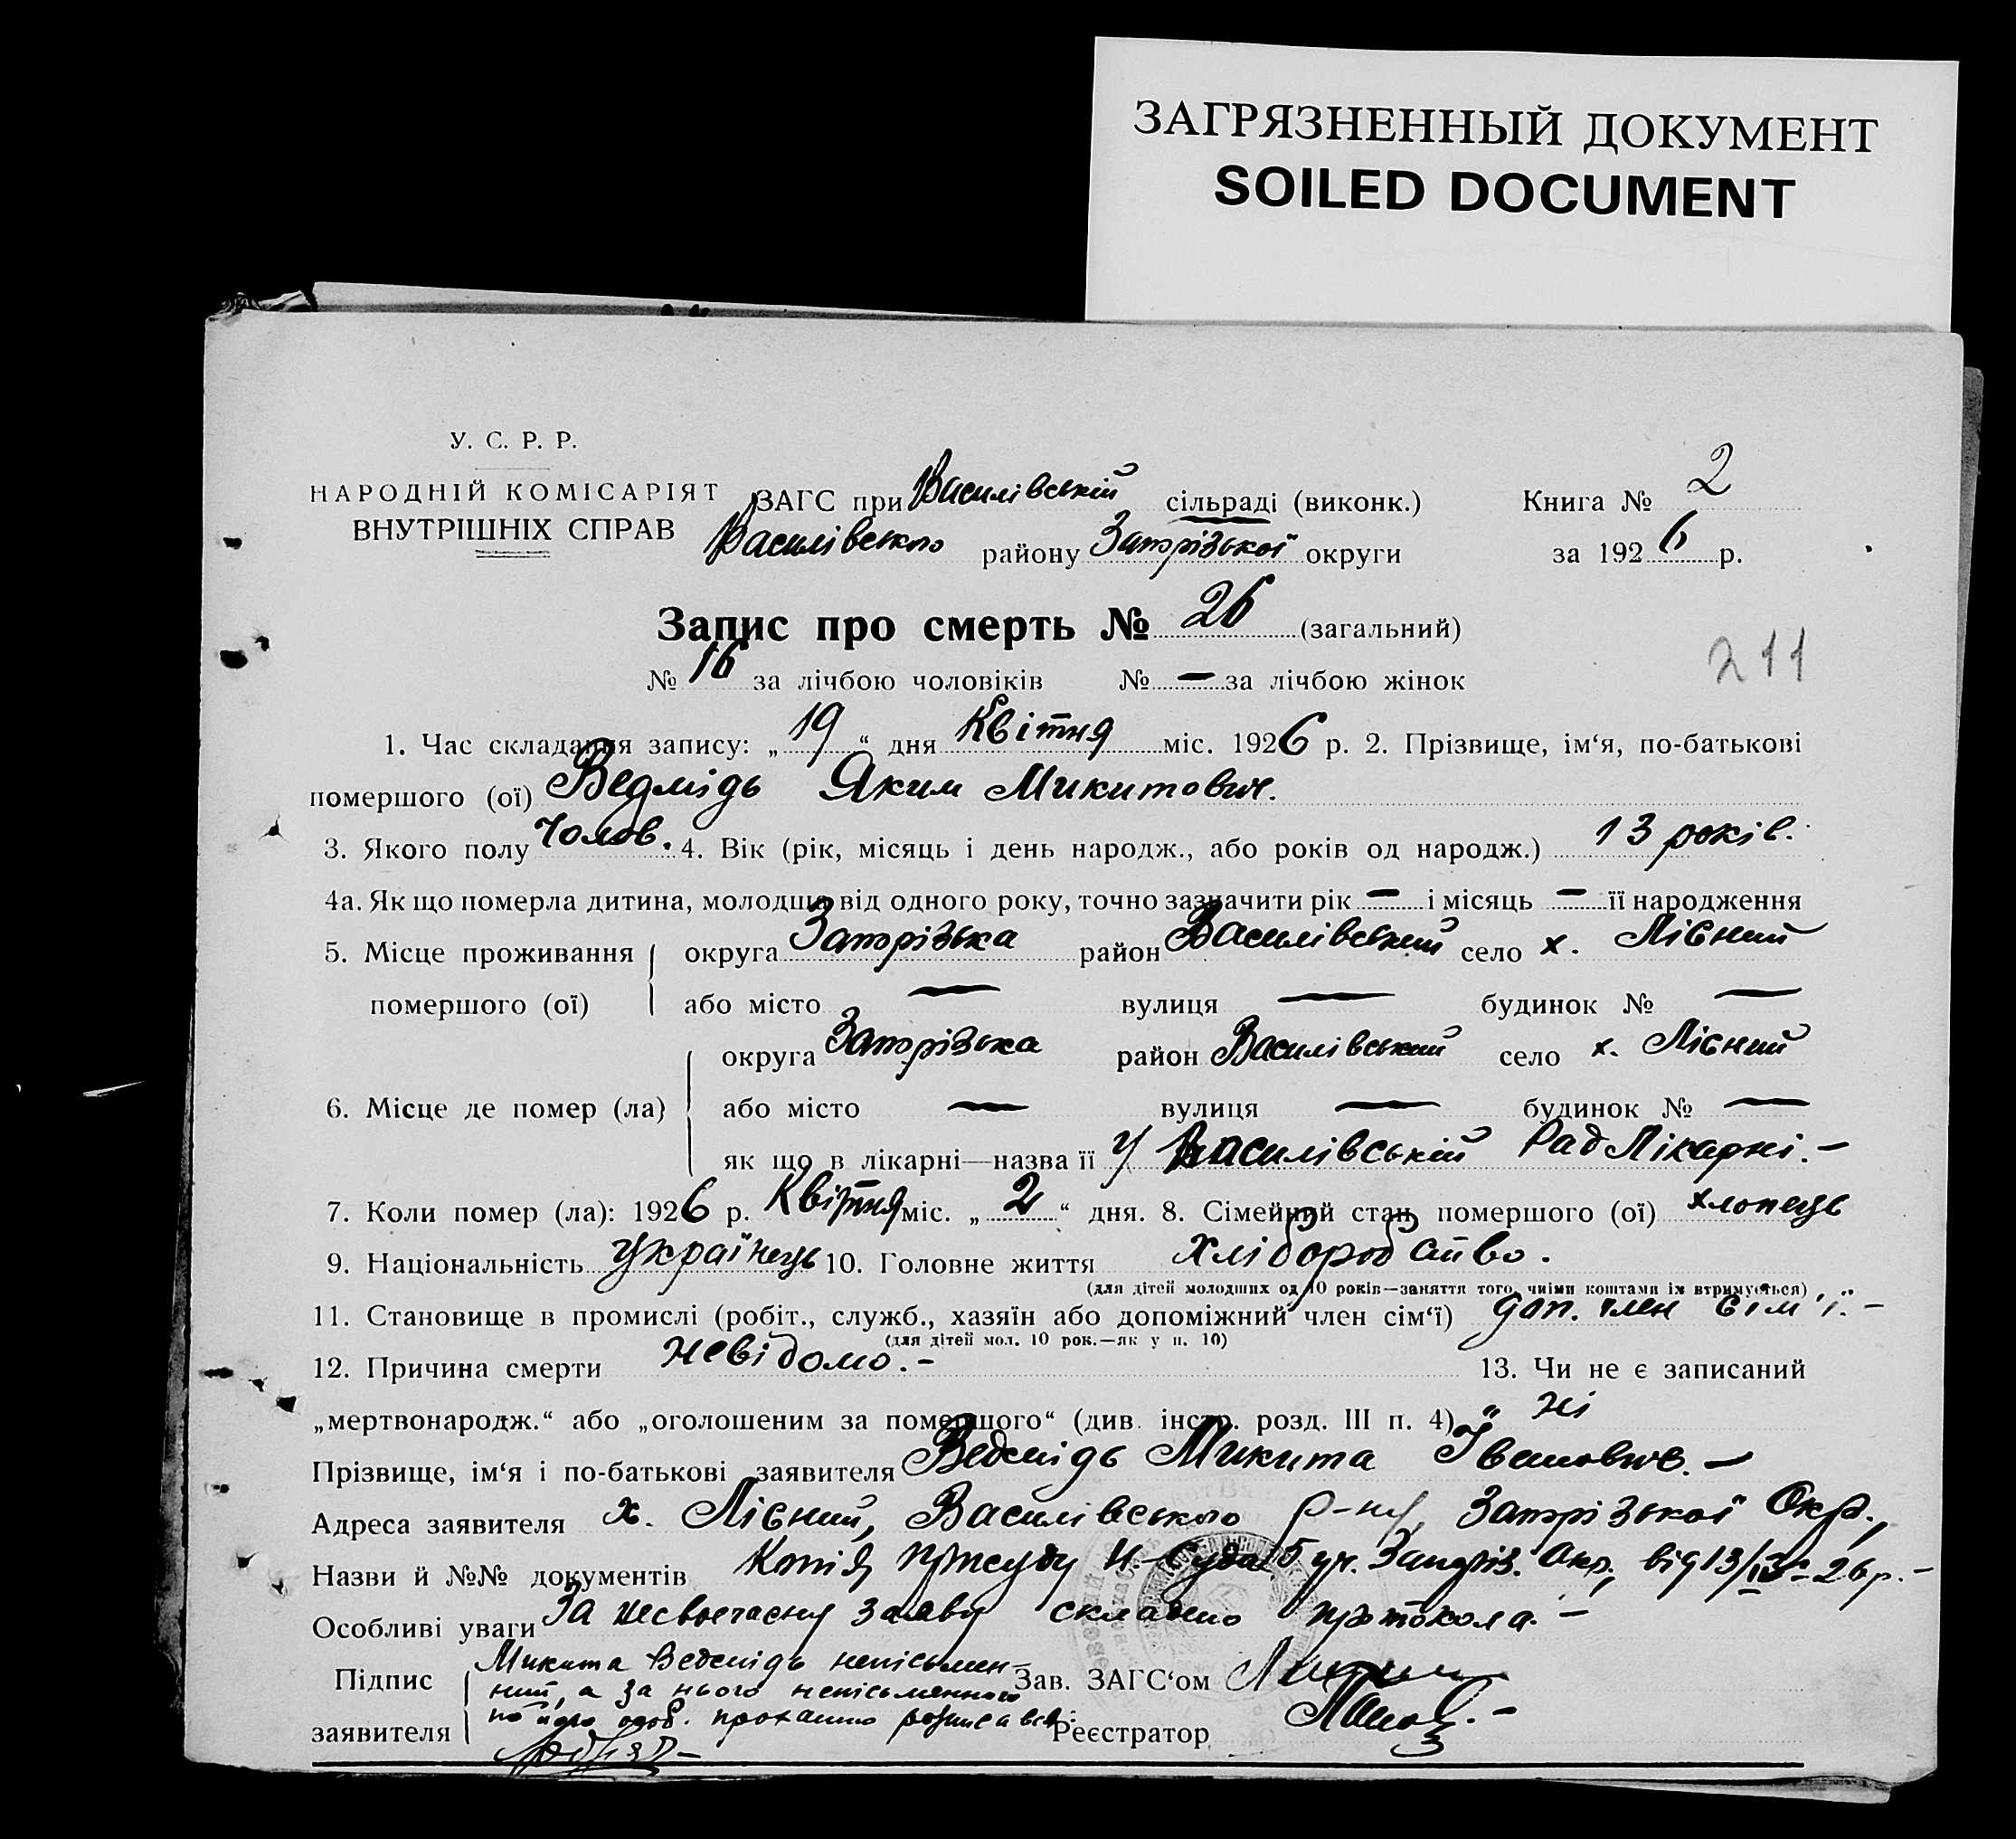 ЗАГРЯЗНЕННЫЙ ДОКУМЕНТ
SOILED DOCUMENT
У. С. Р. Р.
НАРОДНІЙ КОМІСАРІЯТ
ВНУТРІШНІХ СПРАВ
ЗАГС при Василівській сільраді (виконк.) Книга № 2
Василівського району Запорізької округи за 1926 р.
Запис про смерть № 26 (загальний)
211
№ 16 за лічбою чоловіків № — за лічбою жінок
1. Час складання запису: „19“ дня Квітня міс. 1926 р. 2. Прізвище, ім‘я, по-батькові
помершого (ої) Ведмідь Яким Микитович.
3. Якого полу Чолов. 4. Вік (рік, місяць і день народж., або років од народж.) 13 років.
4а. Як що померла дитина, молодша від одного року, точно зазначити рік — і місяць — її народження
5. Місце проживання округа Запорізька район Василівський село х. Лісний
помершого (ої) або місто — вулиця — будинок № —
округа Запорізька район Василівський село х. Лісний
6. Місце де помер (ла) або місто — вулиця — будинок № —
як що в лікарні—назва її У Василівській РадЛікарні.—
7. Коли помер (ла): 1926 р. Квітня міс. „2“ дня. 8. Сімейний стан помершого (ої) хлопець
9. Національність Українець 10. Головне життя Хліборобство.
(для дітей молодших од 10 років—заняття того, чиїми коштами їх втримується)
11. Становище в промислі (робіт., служб., хазяїн або допоміжний член сім‘ї) доп. член сім'ї.—
(для дітей мол. 10 рок.—як у п. 10)
12. Причина смерти невідомо.— 13. Чи не є записаний
„мертвонародж.“ або „оголошеним за помершого“ (див. інстр. розд. III п. 4) ні
Прізвище, ім‘я і по-батькові заявителя Ведмідь Микита Іванович.—
Адреса заявителя х. Лісний, Василівського р-ну, Запорізької Окр.,
Назви й №№ документів Копія присуду Н.-Суда 5 уч. Запоріз. Окр., від 13/ 26 р.—
Особливі уваги За несвоєчасну заяву складено протокола.—
Підпис Микита Ведмідь неписьмен-
ний, а за нього неписьменного
заявителя по його особ. проханню розписався:
Зав. ЗАГС‘ом
Реєстратор